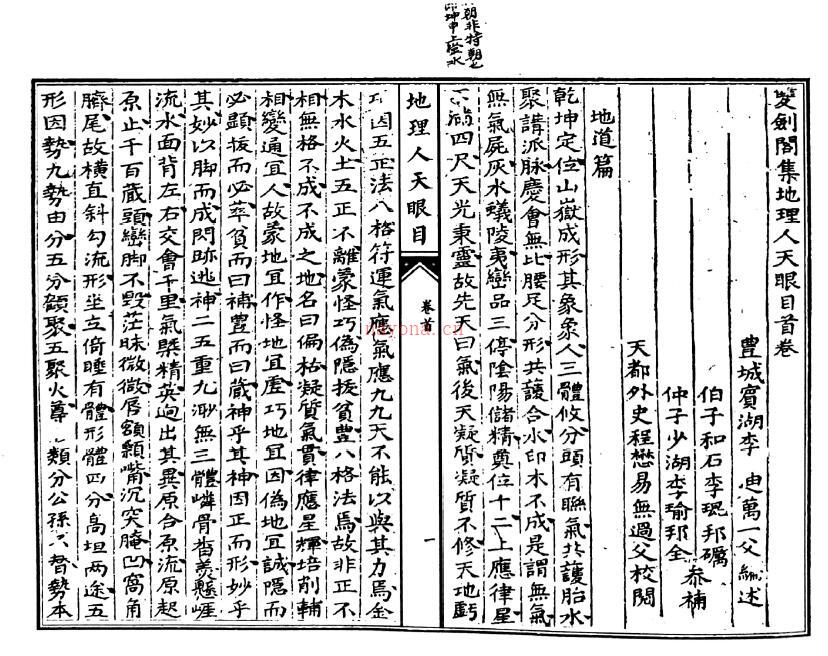 雙劍閣集地理人天眼目首卷
豊城賓湖李 迪萬一父編述
伯子和石李琨邦礪
仲子少湖李瑜邦全
參補
天都外史程懋易無過父校閱
地道篇
乾坤定位山嶽成形其象象人三體攸分頭有聯氣共護胎水
聚講派脉慶會無比腰足分形共護合水印木不成是謂無氣
無氣屍灰水蟻陵夷巒品三停陰陽儲精奠位十二上應律星
四尺天光東靈故先天曰氣後天凝質凝質不修天地虧
地理人天眼目
卷首
一
因五正法八格符運氣應氣應九九天不能以與其力焉金
木水火土五正不離蒙怪巧偽隱拔貧豊八格法焉故非正不
相無格不成不成之地名曰偏枯凝質氣貫律應星輝培削輔
相變通宜人故蒙地宜作怪地宜虛巧地宜因偽地宜誠隱而
必顯拔而必萃貧而曰補豊而曰藏神乎其神因正而形妙乎
其妙以脚而成閃跡逃神二五重九渺無三體嶙骨畨義懸崖
流水面背左右交會千里氣槩精英迥出其異原合原流原起
原止千百藏頭巒脚不毀茫昧微微唇頷顙嘴沉突腌凹窩角
臍尾故橫直斜勾流形坐立倚睡有體形體四分高坦兩途五
形因勢九勢由分五分顴聚五聚火尊 類分公孫 督勢本
朝非特朝也
坤申上堂水